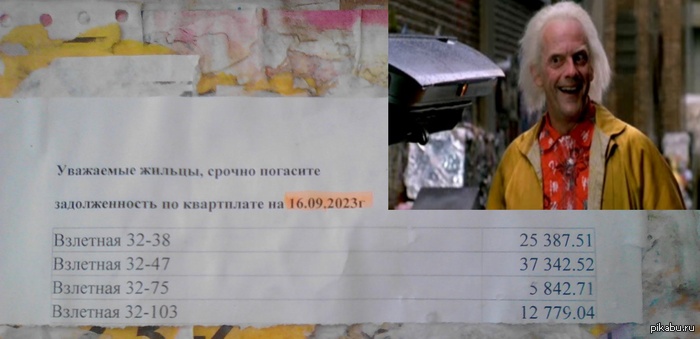 Уважаемые жильцы, срочно погасите
задолженность по квартплате на 16.09.2023г
Взлетная 32-38 25 387.51
Взлетная 32-47 37 342.52
Взлетная 32-75 5 842.71
Взлетная 32-103 12 779.04
pikabu.ru